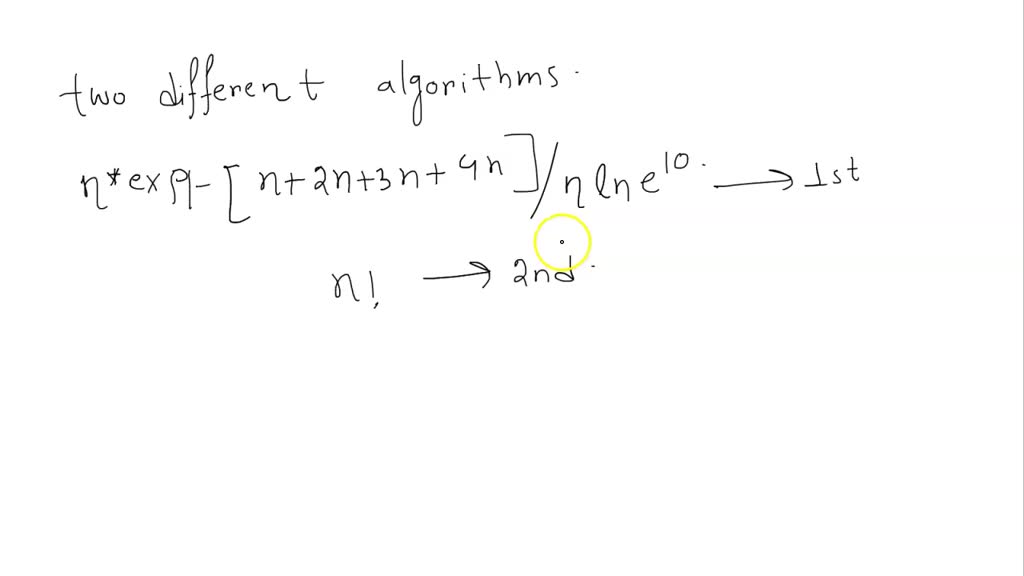 two different algorithms.
n*exp-[n+2n+3n+4n]/n ln e^10. → 1st
n! → 2nd.